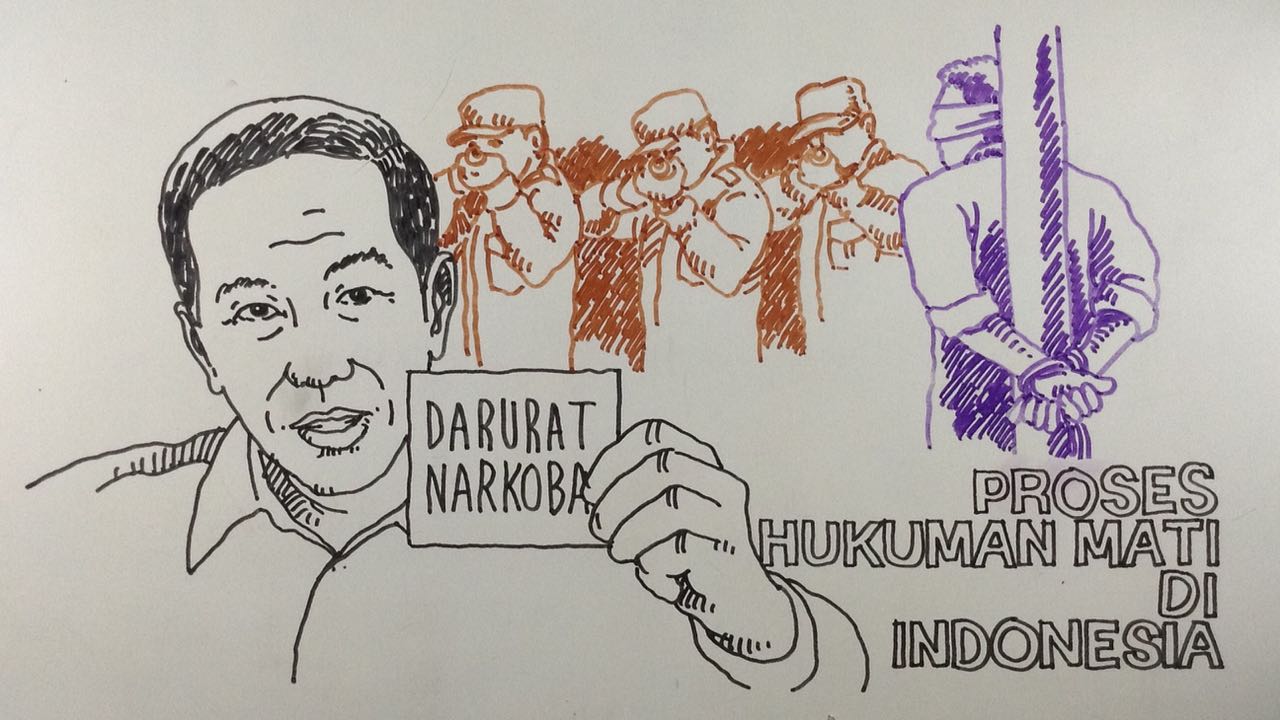 DARURAT
NARKOBA
PROSES
HUKUMAN MATI
DI
INDONESIA